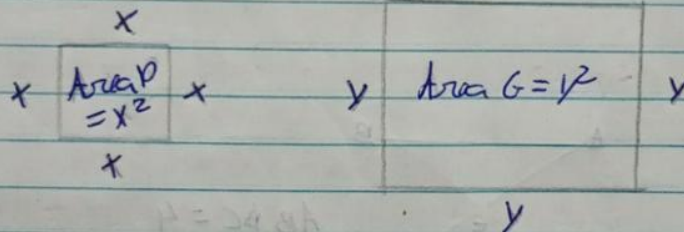 x
x Area P x
= x²
x
y Area G = y²  y
y